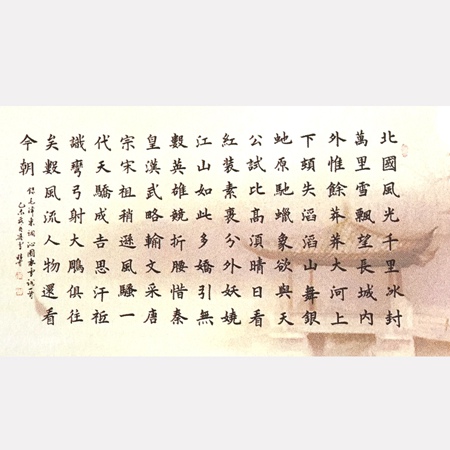 北國風光千里冰封
萬里雪飄望長城內
外惟餘莽莽大河上
下頓失滔滔山舞銀
虵原馳蠟象欲與天
公試比高須晴日看
紅裝素裹分外妖嬈
江山如此多嬌引無
數英雄競折腰惜秦
皇漢武略輸文采唐
宗宋祖稍遜風騷一
代天驕成吉思汗衹
識彎弓射大鵬俱往
矣數風流人物還看
今朝
錄毛澤東詞沁園春雪
乙未